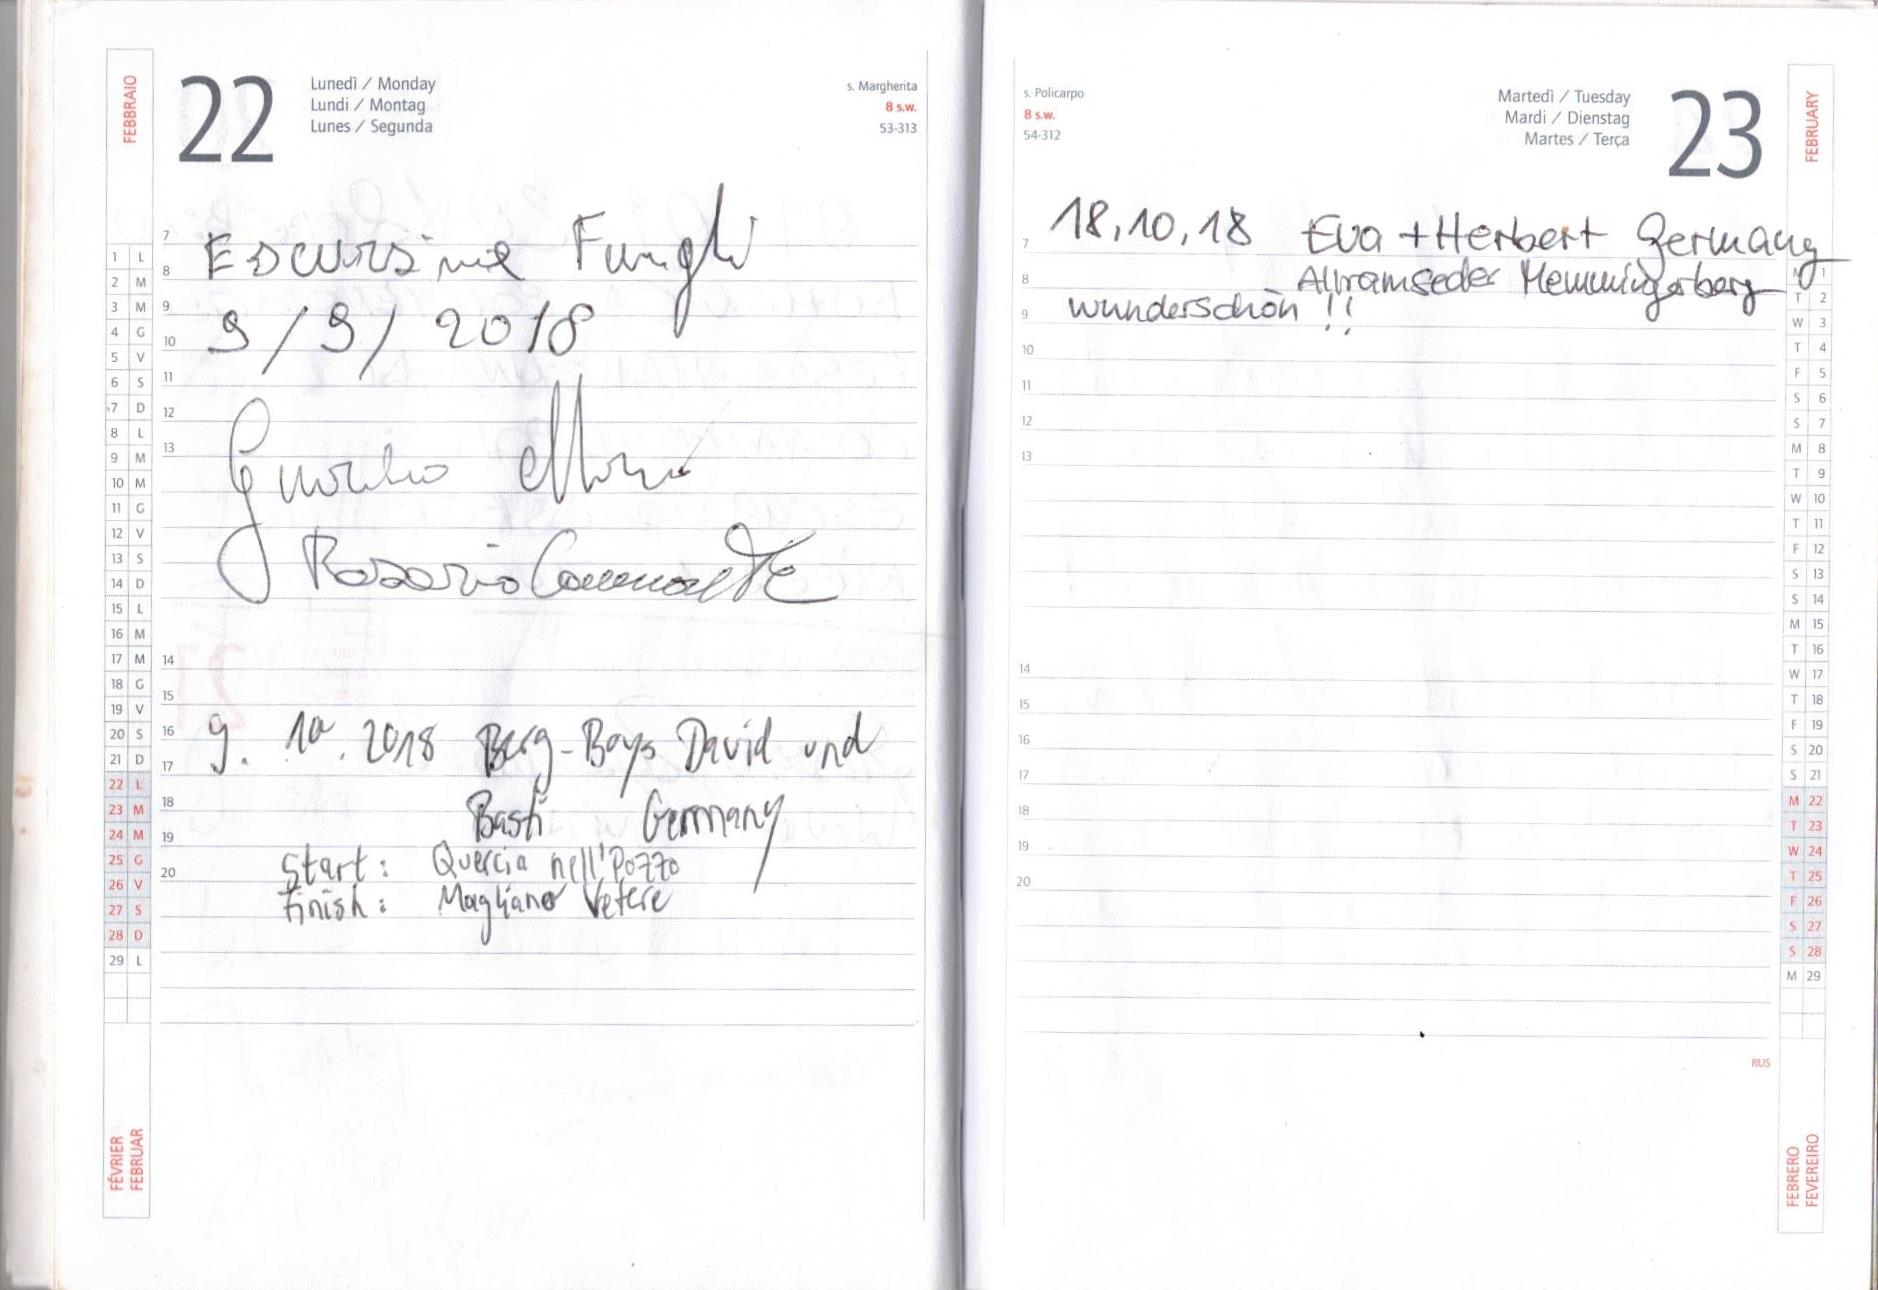 FEBBRAIO
22
Lunedì / Monday
Lundi / Montag
Lunes / Segunda
s. Margherita
8 s.w.
53-313
7
8
9
10
11
12
13
14
15
16
17
18
19
20
Escursine Funghi
9/9/2018
Rosario
9. 10. 2018 Berg-Boys David und
Basti Germany
Start: Quercia nell'Pozzo
Finish: Magliano Vetere
1 L
2 M
3 M
4 G
5 V
6 S
7 D
8 L
9 M
10 M
11 G
12 V
13 S
14 D
15 L
16 M
17 M
18 G
19 V
20 S
21 D
22 L
23 M
24 M
25 G
26 V
27 S
28 D
29 L
FÉVRIER
FEBRUAR
s. Policarpo
8 s.w.
54-312
Martedì / Tuesday
Mardi / Dienstag
Martes / Terça
23
FEBRUARY
18.10.18 Eva + Herbert Germany
Allramseder Memmingerberg
wunderschön !!
7
8
9
10
11
12
13
14
15
16
17
18
19
20
M 1
T 2
W 3
T 4
F 5
S 6
S 7
M 8
T 9
W 10
T 11
F 12
S 13
S 14
M 15
T 16
W 17
T 18
F 19
S 20
S 21
M 22
T 23
W 24
T 25
F 26
S 27
S 28
M 29
RUS
FEBRERO
FEVEREIRO